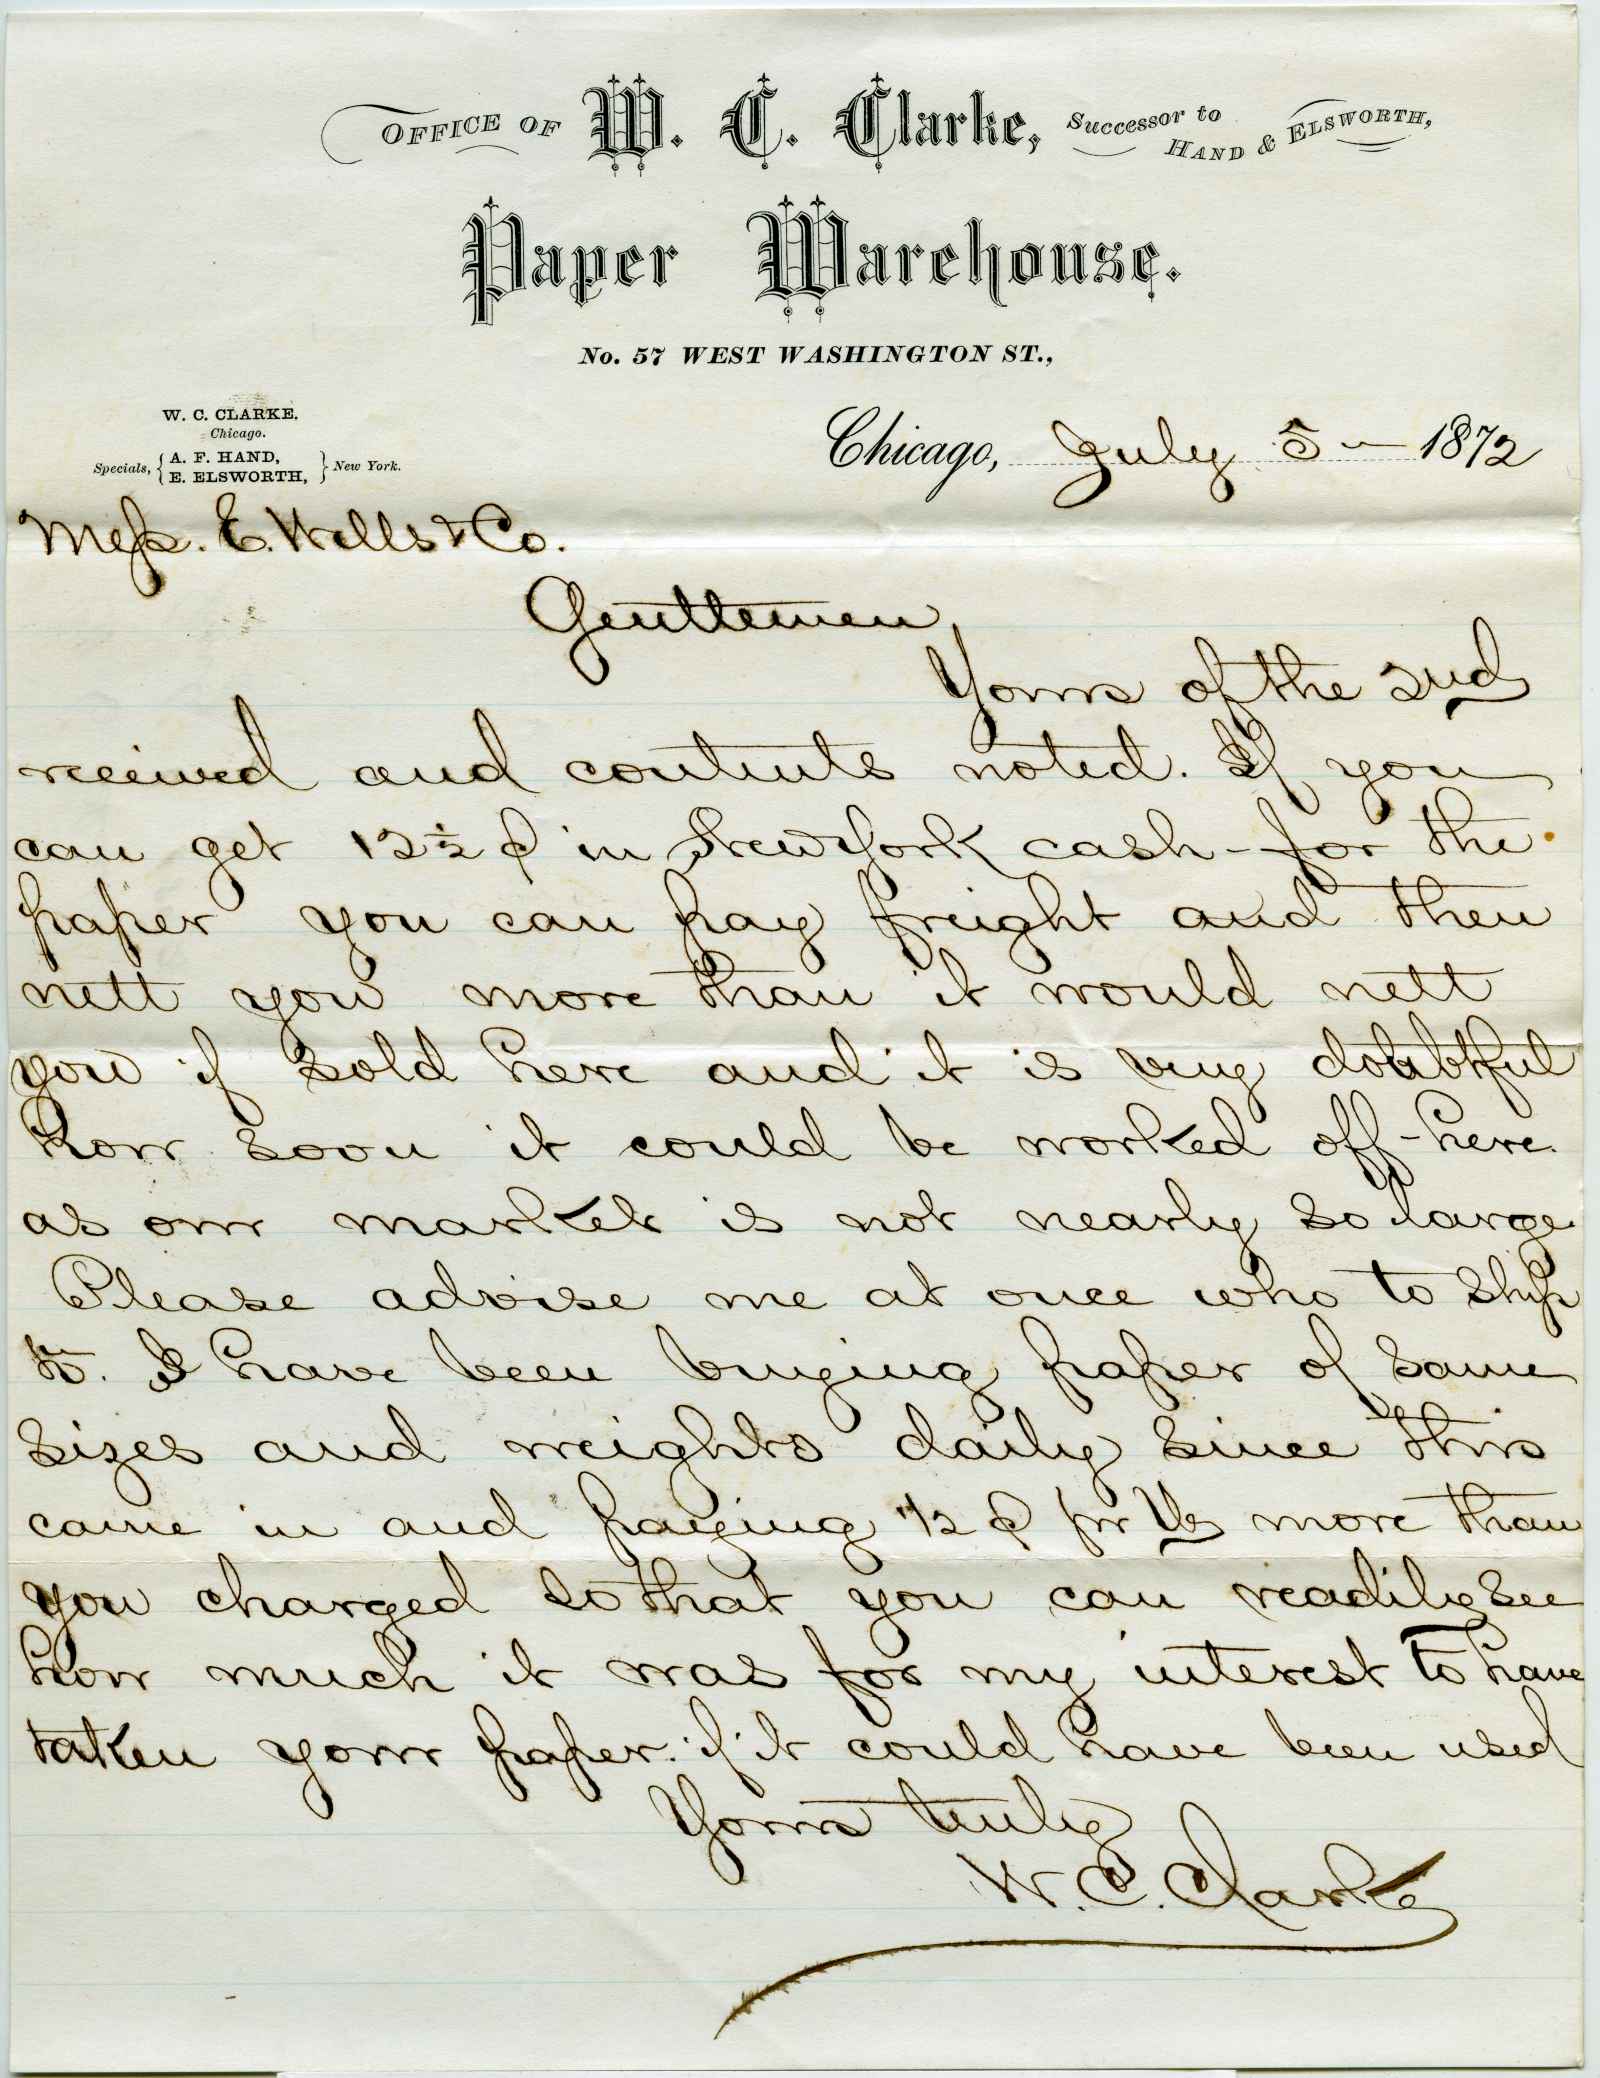 OFFICE OF W. C. Clarke, Successor to HAND & ELSWORTH,
Paper Warehouse.
No. 57 WEST WASHINGTON ST.,
W. C. CLARKE.
Chicago.
Specials, { A. F. HAND, E. ELSWORTH, } New York.
Chicago, July 5 - 1872
Mess. E. Wells & Co.
Gentlemen,
Yours of the 2nd
received and contents noted. If you
can get 12½ ¢ in New York cash - for the
paper you can pay freight and then
nett you more than it would nett
you if sold here and it is very doubtful
how soon it could be worked off - here.
as our market is not nearly so large
Please advise me at once who to ship
to. I have been buying paper of same
sizes and weights daily since this
came in and paying 1/2 ¢ pr lb more than
you charged so that you can readily see
how much it was for my interest to have
taken your paper. if it could have been used
Yours truly
W. C. Clarke